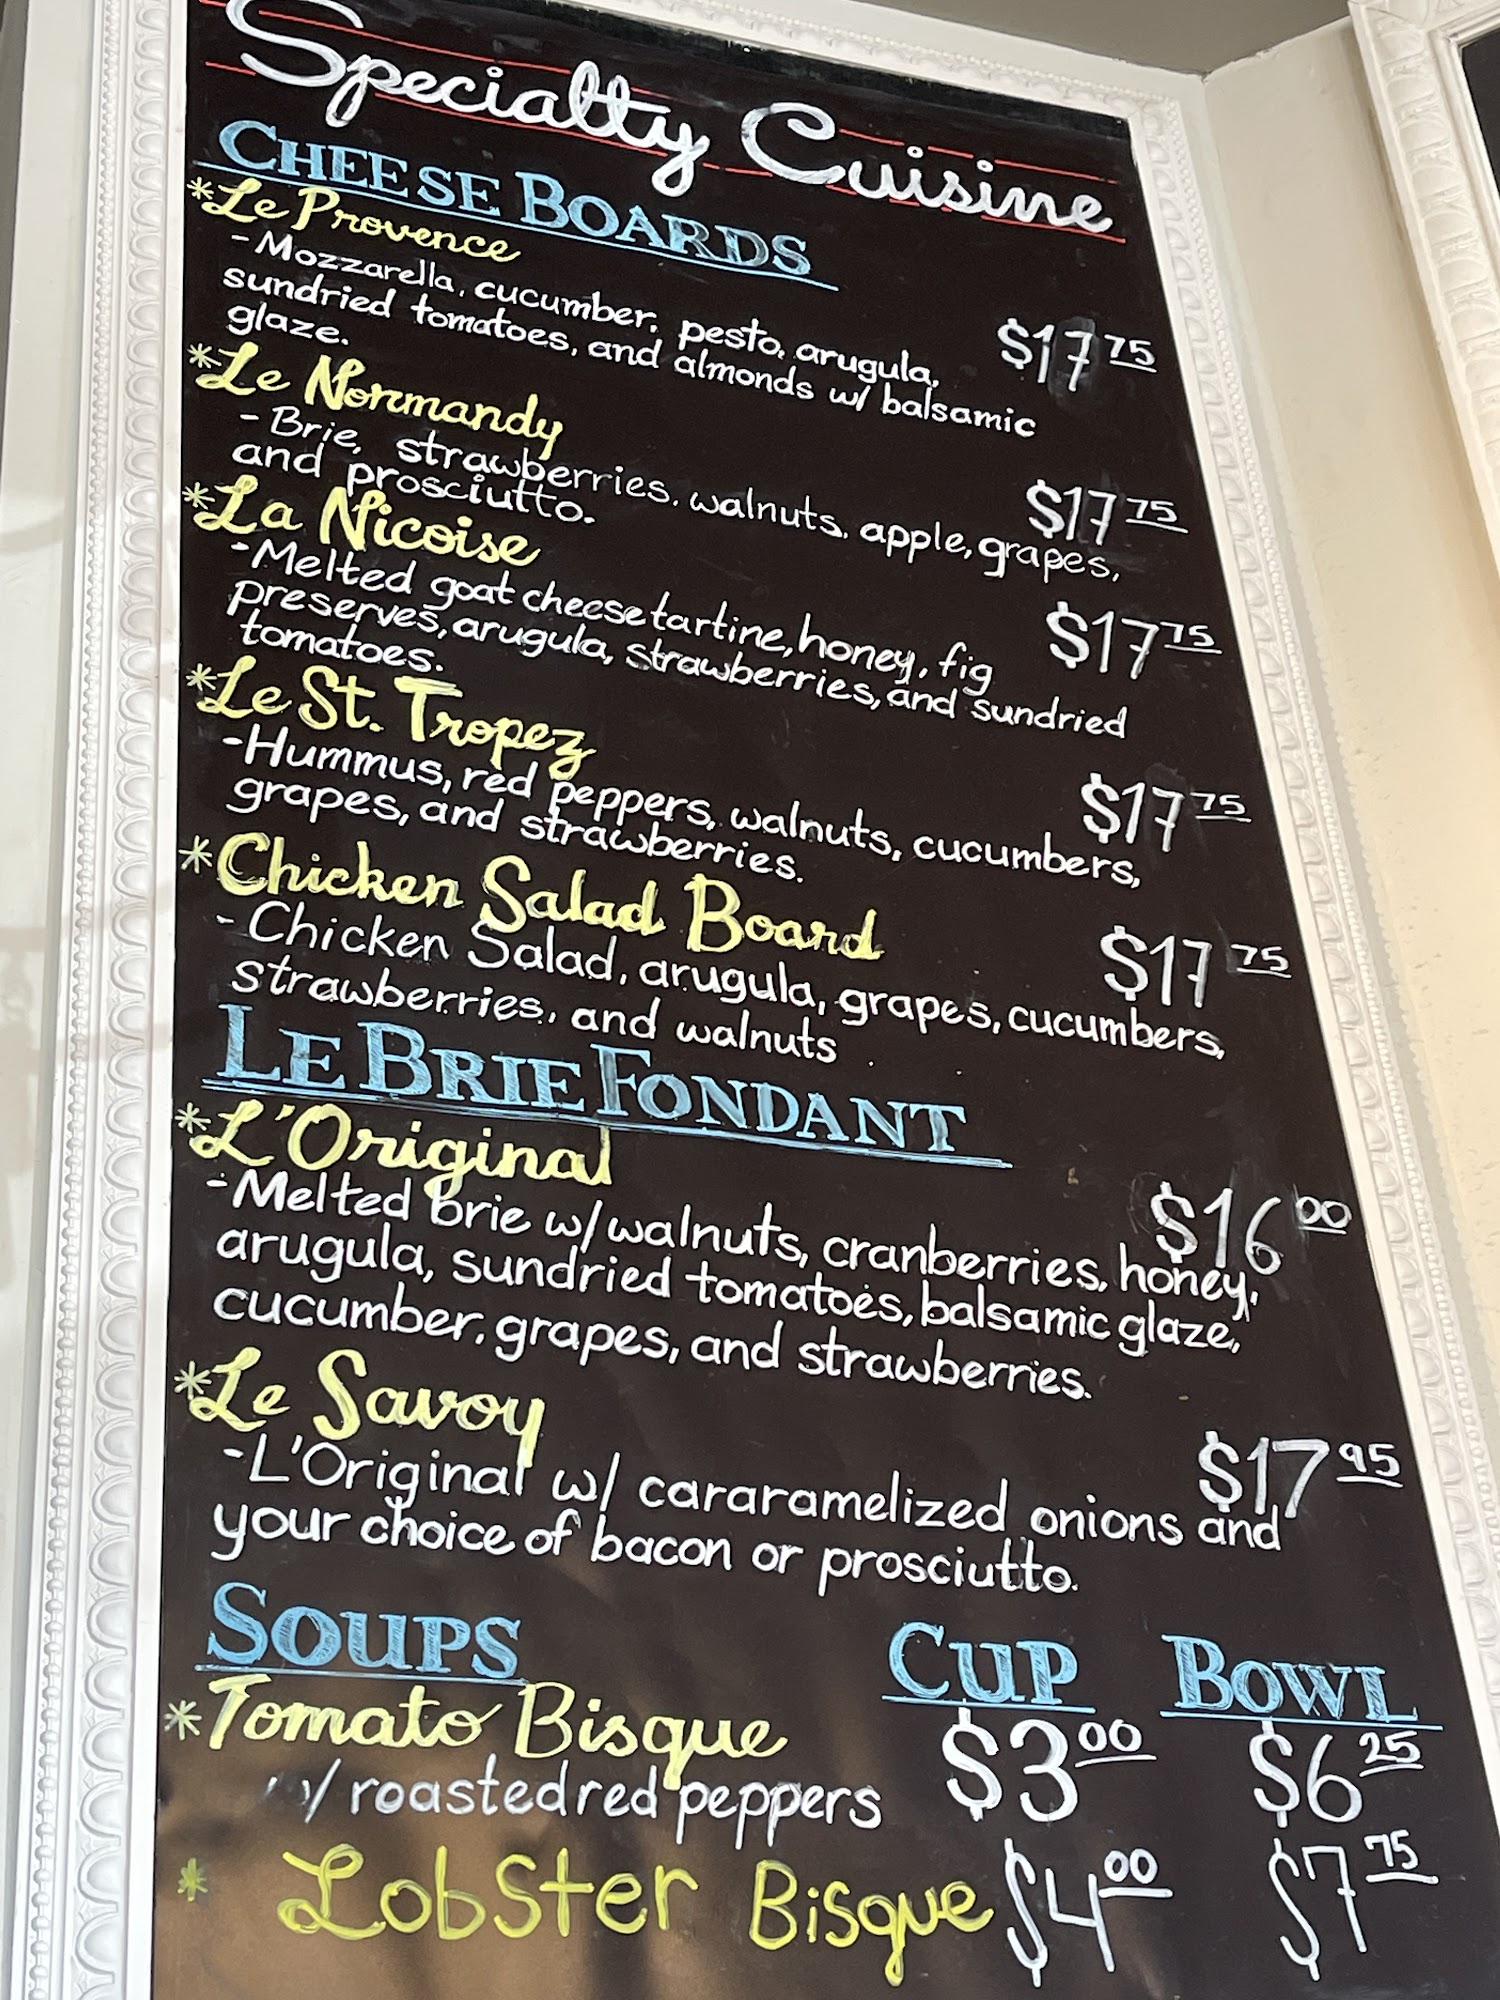 Specialty Cuisine
CHEESE BOARDS
*Le Provence
-Mozzarella, cucumber, pesto, arugula, $17 75
sundried tomatoes, and almonds w/ balsamic
glaze.
*Le Normandy
- Brie, strawberries, walnuts, apple, grapes, $17 75
and prosciutto.
*La Nicoise
-Melted goat cheese tartine, honey, fig $17 75
preserves, arugula, strawberries, and sundried
tomatoes.
*Le St. Tropez
-Hummus, red peppers, walnuts, cucumbers, $17 75
grapes, and strawberries.
*Chicken Salad Board
- Chicken Salad, arugula, grapes, cucumbers, $17 75
strawberries, and walnuts
LE BRIE FONDANT
*L'Original
-Melted brie w/ walnuts, cranberries, honey, $16 00
arugula, sundried tomatoes, balsamic glaze,
cucumber, grapes, and strawberries.
*Le Savoy
-L'Original w/ cararamelized onions and $17 95
your choice of bacon or prosciutto.
SOUPS CUP BOWL
*Tomato Bisque $3 00 $6 25
w/ roasted red peppers
* Lobster Bisque $4 00 $7 75